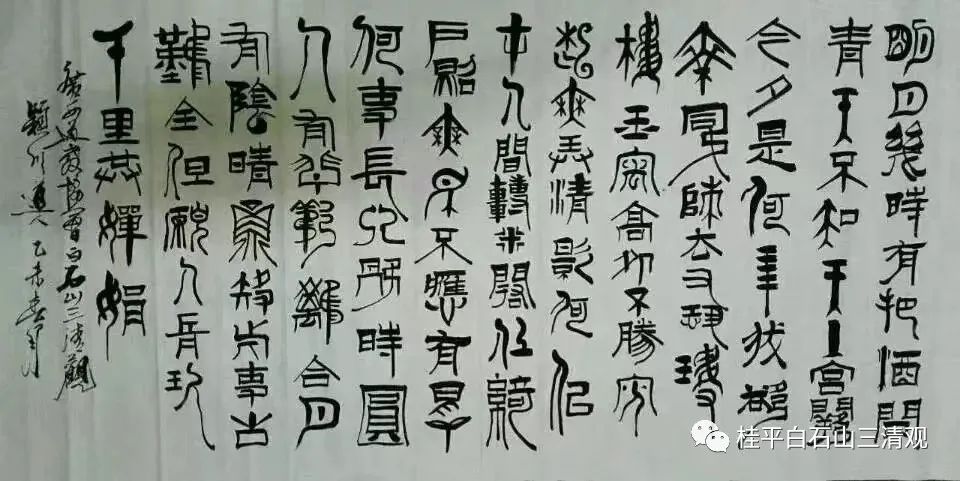 明月幾時有把酒問
青天不知天上宮闕
今夕是何年我欲
乘風歸去又恐瓊
樓玉宇高處不勝寒
起舞弄清影何似
在人間轉朱閣低綺
戶照無眠不應有恨
何事長向別時圓
人有悲歡離合月
有陰晴圓缺此事古
難全但願人長久
千里共嬋娟
廣西道教協會白石山三清觀
乙未春月
桂平白石山三清观